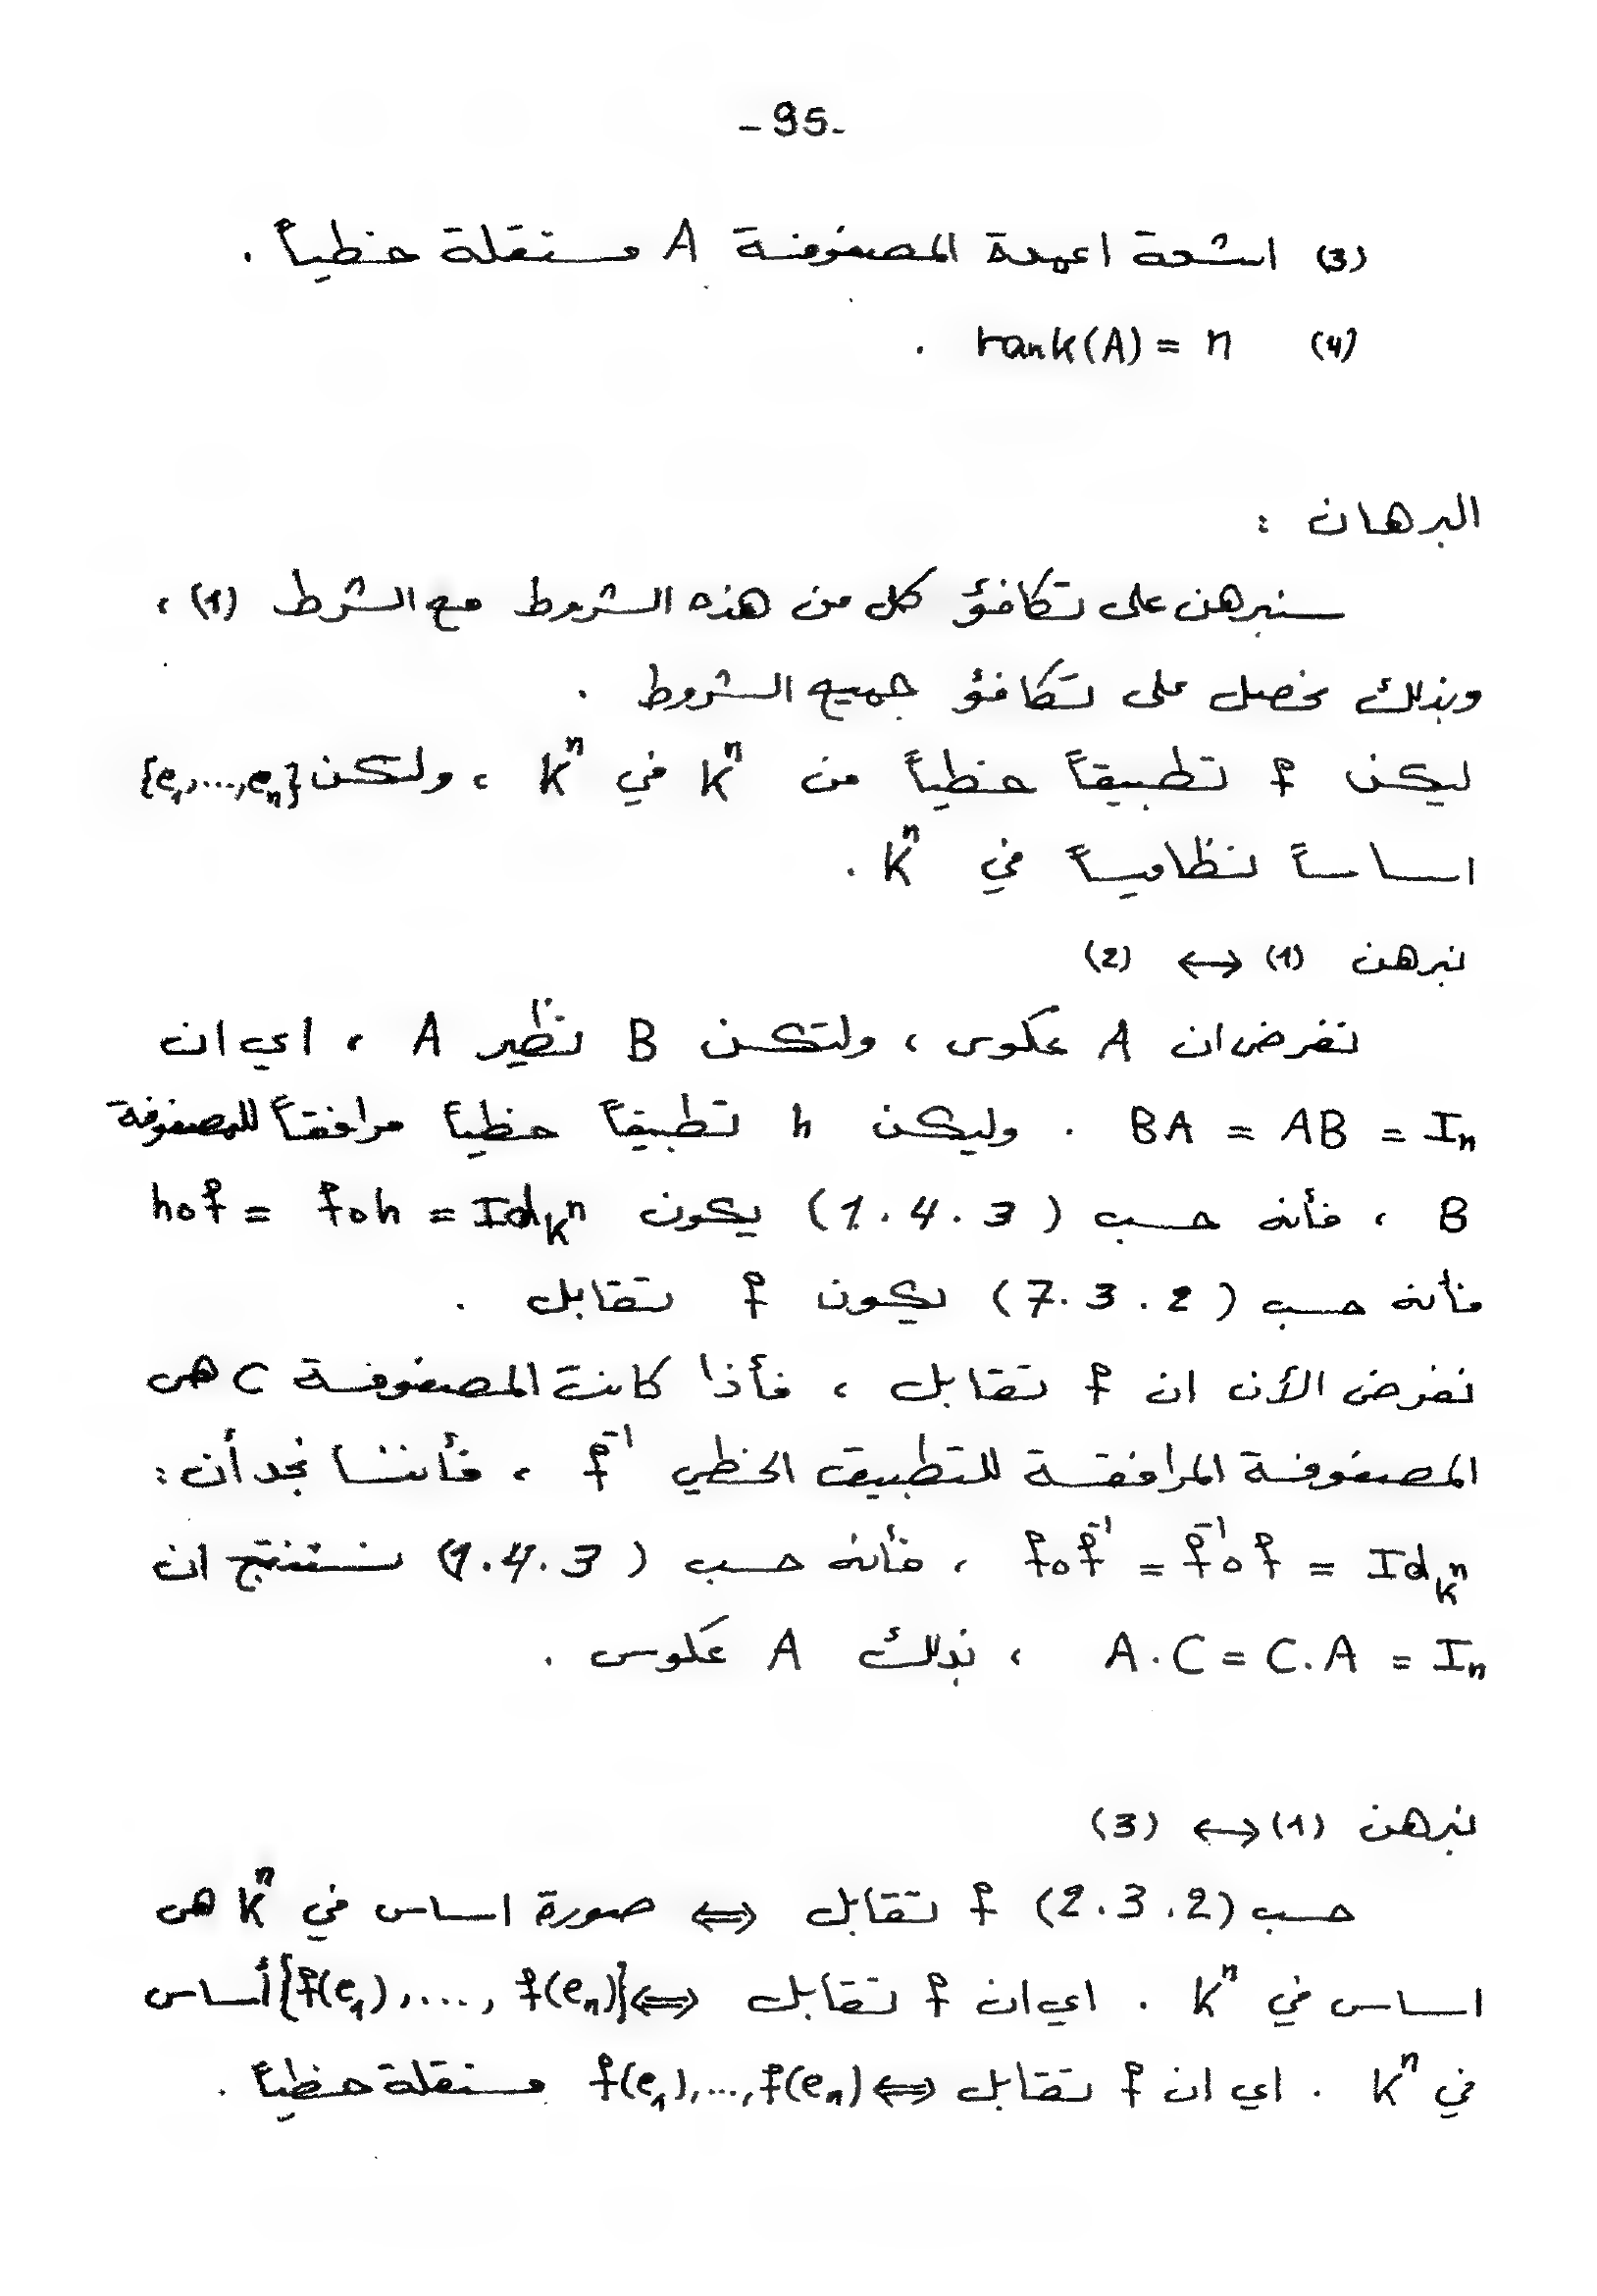 -95-
(3) اشعة اعمدة المصفوفة A مستقلة خطياً .
(4) rank(A) = n .
البرهان :
سنبرهن على تكافؤ كل من هذه الشروط مع الشرط (1) ،
وبذلك نحصل على تكافؤ جميع الشروط .
ليكن f تطبيقاً خطياً من Kⁿ في Kⁿ ، ولتكن {e₁,...,eₙ}
اساساً نظامياً في Kⁿ .
نبرهن (1) ↔ (2)
نفرض ان A عكوس ، ولتكن B نظير A ، اي ان
BA = AB = Iₙ . وليكن h تطبيقاً خطياً مرافقاً للمصفوفة
B ، فأنه حسب (1.4.3) يكون hof = foh = Id_Kⁿ
فأنه حسب (7.3.2) يكون f تقابل .
نفرض الأن ان f تقابل ، فأذا كانت المصفوفة C هي
المصفوفة المرافقة للتطبيق الخطي f⁻¹ ، فأننا نجد أن :
fof⁻¹ = f⁻¹of = Id_Kⁿ ، فأنه حسب (1.4.3) نستنتج ان
A.C = C.A = Iₙ ، بذلك A عكوس .
نبرهن (1) ↔ (3)
حسب (2.3.2) f تقابل ⇔ صورة اساس في Kⁿ هي
اساس في Kⁿ . اي ان f تقابل ⇔ {f(e₁),...., f(eₙ)} أساس
في Kⁿ . اي ان f تقابل ⇔ f(e₁),...,f(eₙ) مستقلة خطياً .